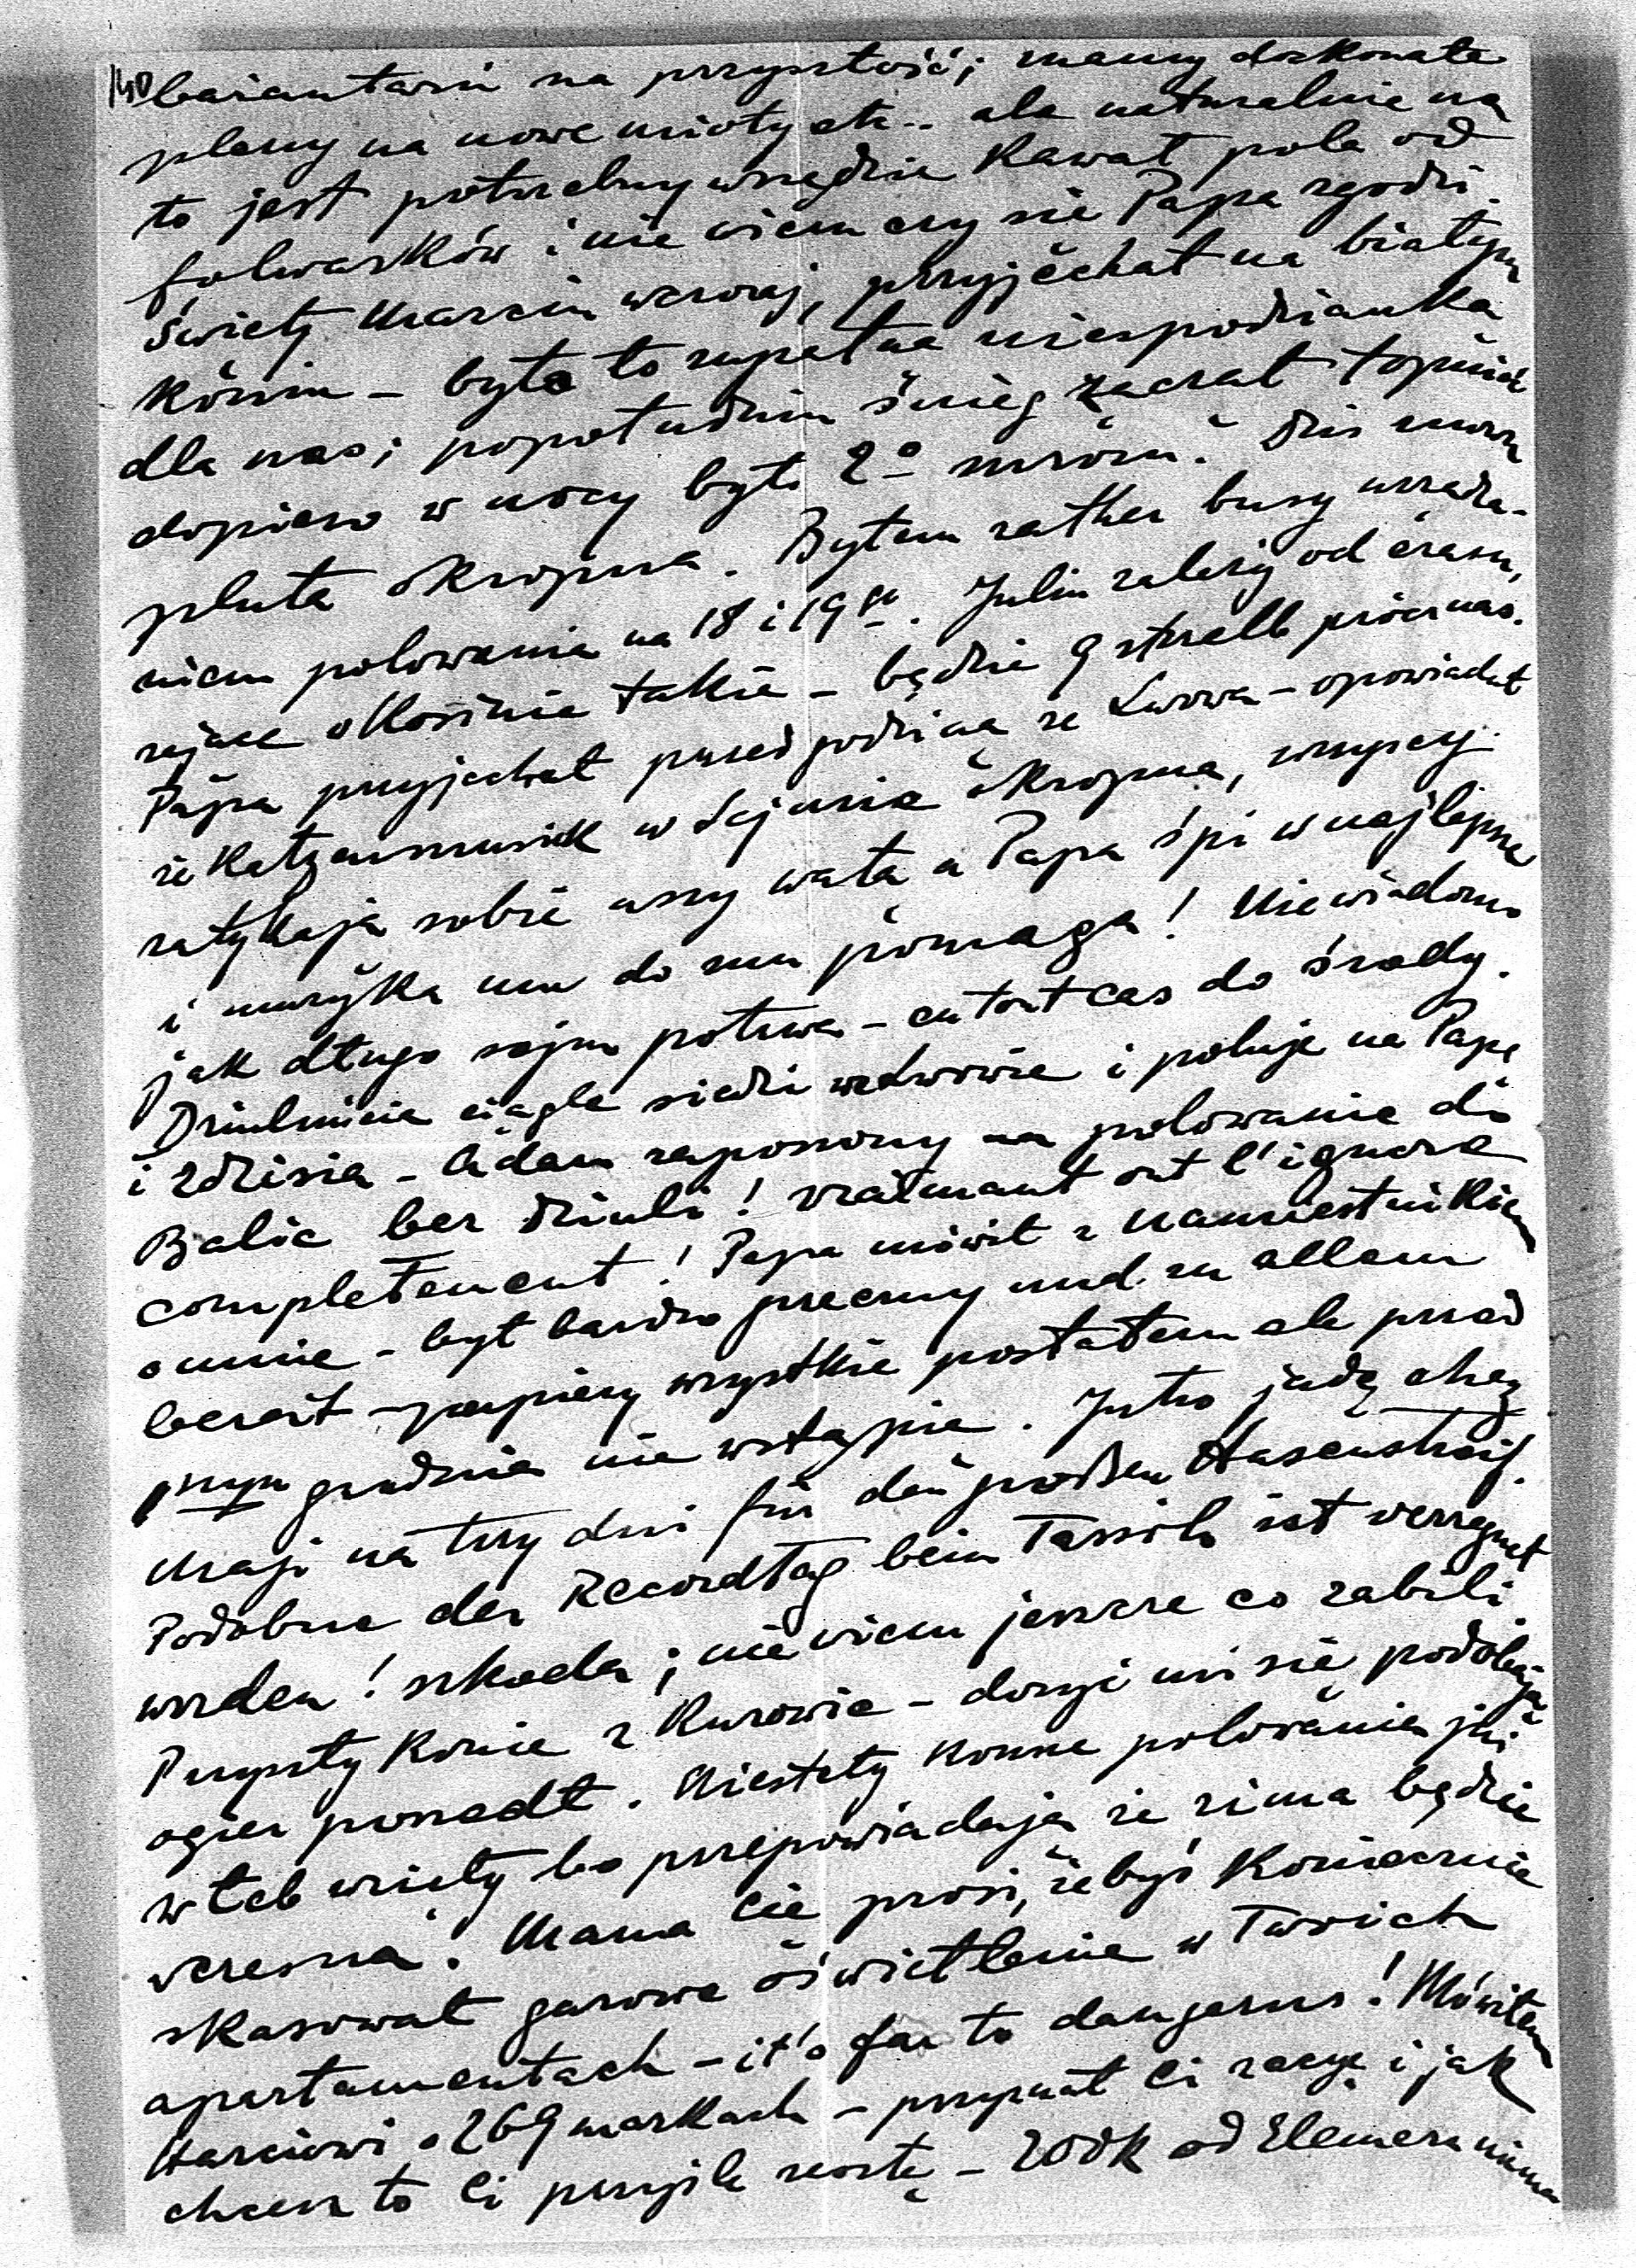 140
bażantarni na przyszłość; mamy doskonałe
plany na nowe mioty etc.. ale naturalnie na
to jest potrzebny wszędzie kawał pola od
folwarków i nie wiem czy się Papa zgodzi.
Święty Marcin wczoraj, przyjechał na białym
koniu – była to zupełna niespodzianka
dla nas; popołudniu śnieg zaczął topnieć
dopiero w nocy było 2° mrozu. Dziś znów
pluta okropna. Byłem rather busy urządza-
niem polowania na 18 i 19go. Julin zależy od czasu,
będzie 9 strzelb prócz nas.
Papa przyjechał przed godziną ze Lwowa – opowiadał
że Katzenmusik w Sejmie okropna, wszyscy
zatykają sobie uszy watą a Papa śpi w najlepsze
i muzyka mu do snu pomaga! Niewiadomo
jak długo sejm potrwa – en tout cas do środy.
Dziulinicia ciągle siedzi we Lwowie i poluje na Papę
i Zdzisia – Adam zaproszony na polowanie do
Balic bez Dziuli! vraimant ont l'ignore
completement! Papa mówił z Namiestnikiem
o mnie – był bardzo grzeczny und zu allem
bereit – papiery wszystkie posłałem ale przed
grudnia nie wstąpię. Jutro jadę chez
Maji na trzy dni für den großen Hasenstreif.
Podobno der Recordtag beim Tassilo ist verregnet
worden! szkoda; nie wiem jeszcze co zabili
Przyszły konie z Kurowic – dosyć mi się podobają
ogier poszedł. Niestety konne polowania już
w łeb wzięły bo przepowiadają że zima będzie
wczesna. Mama Cię prosi, żebyś koniecznie
skasował gazowe oświetlenie w Twoich
apartamentach – it's far to dangerus! Mówiłem
Harciowi o 269 markach – przyznał Ci rację i jak
chcesz to Ci przyśle resztę – 200k od Elemera nima